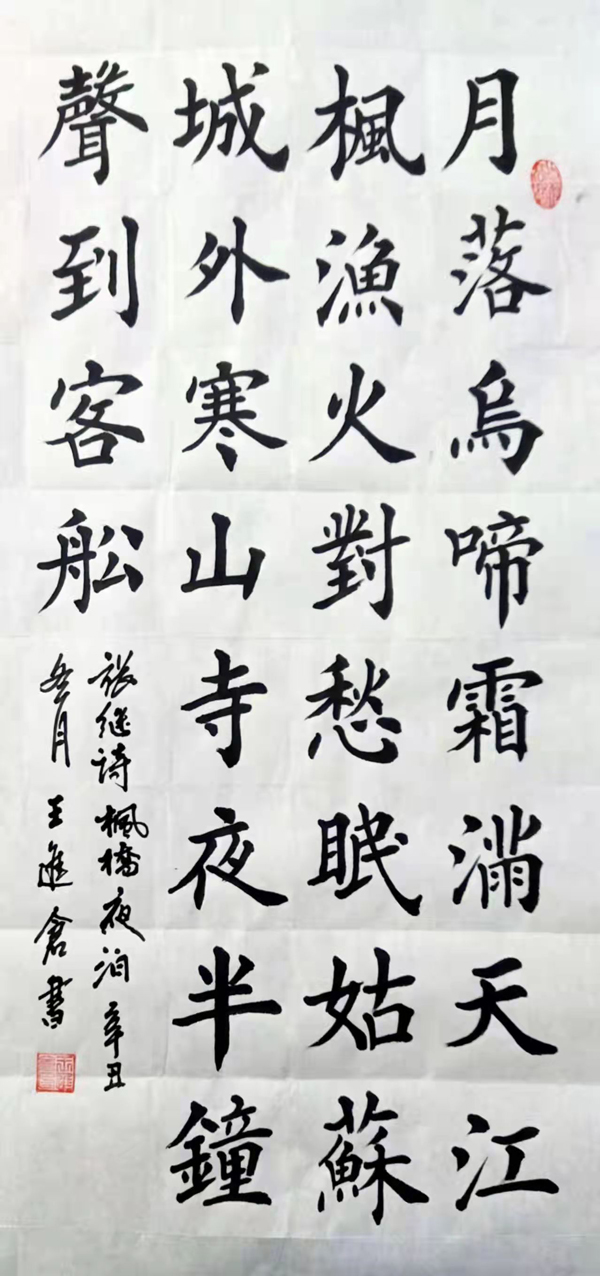 月落烏啼霜滿天江
楓漁火對愁眠姑蘇
城外寒山寺夜半鐘
聲到客船
张继诗楓橋夜泊辛丑
月王進倉書